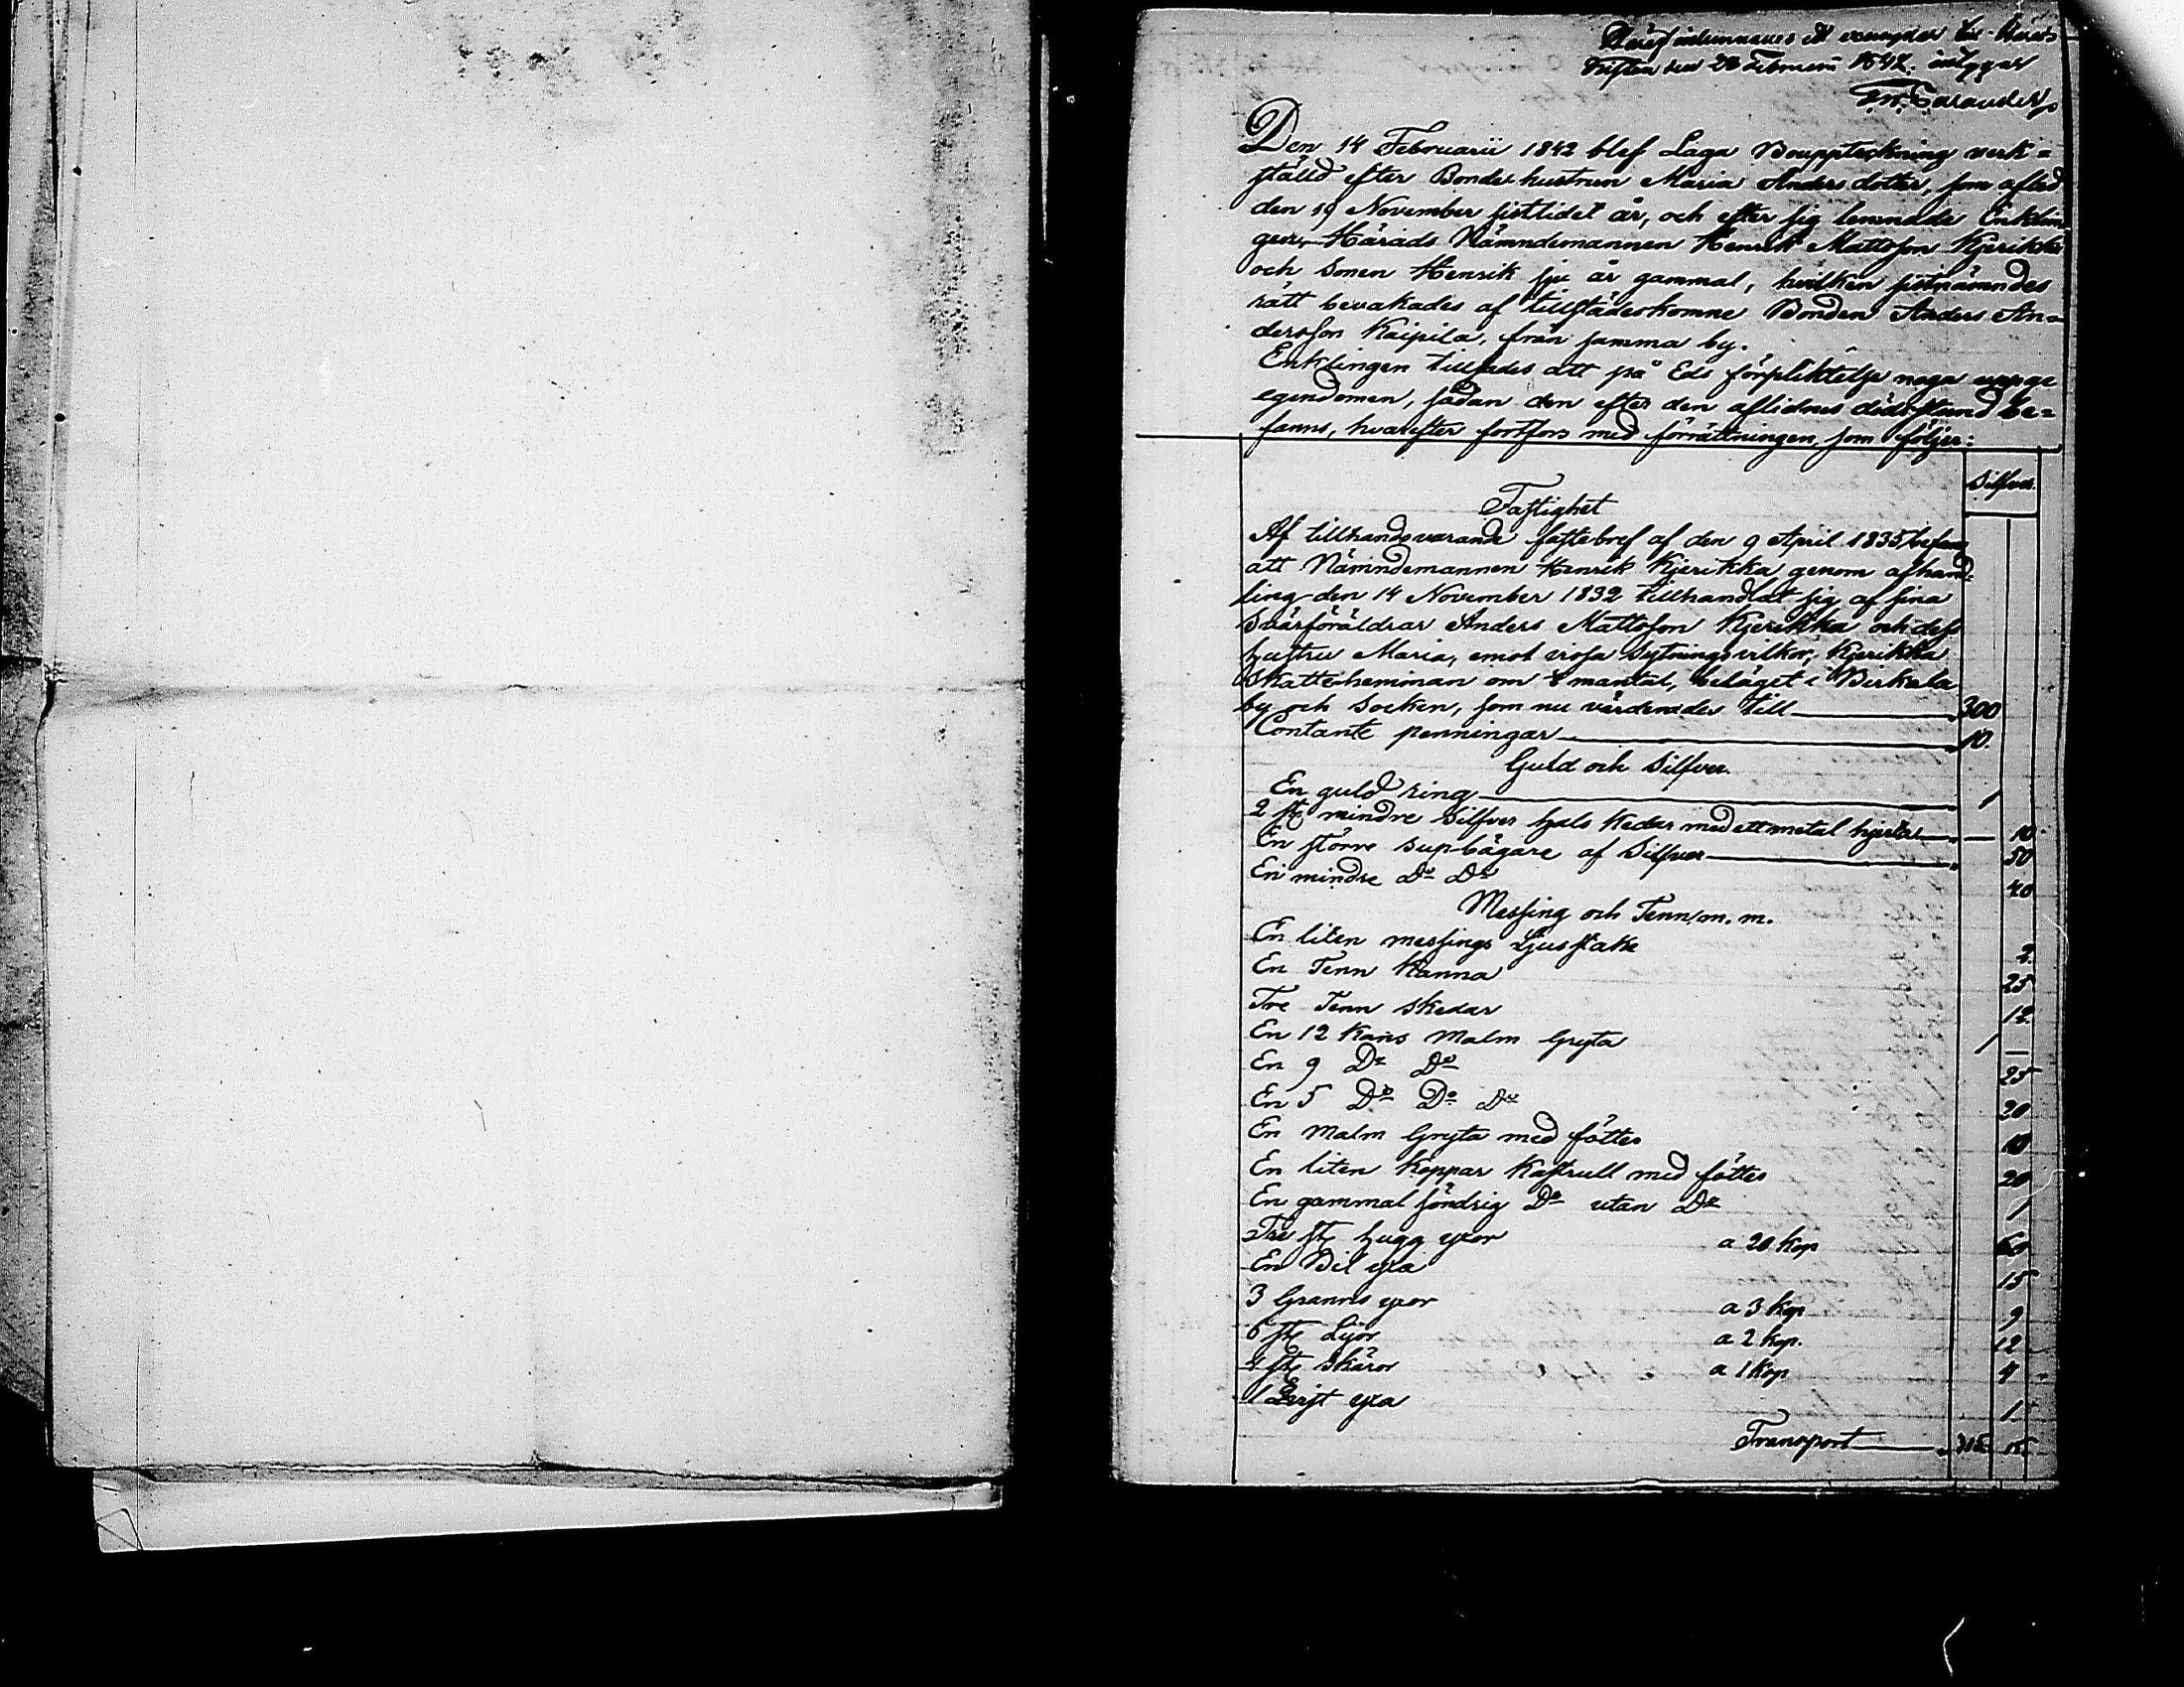 Häraf inlemnades ett exemplar
den 28 Februarii 1842. intygar
Den 14 Februarii 1842 blef Laga Bouppteckning verk=
ställd efter Bonde hustrun Maria Anders dotter, som afled
den 19 November sistlidet år, och efter sig lemnade Enklin=
gen, Härads Nämndemannen Henrik Mattsson Kjerikka
och Sonen Henrik sju år gammal, hvilken sistnämndes
rätt bevakades af tillstädeskomne Bonden Anders An=
dersson Kaipila, från samma by.
Enklingen tillsades att på Eds förpliktelse noga uppge
egendomen, sådan den efter den aflidnes dödsstund be=
fanns, hvarefter fortfors med förrättningen, som följer:
Silfver.
Fastighet
Af tillhandsvarande fastebref af den 9 April 1835, befans
att Nämndemannen Henrik Kjerikka genom afhand=
ling den 14 November 1832 tillhandlat sig af sina
Svärföräldrar Anders Mattsson Kjerikka och dess
hustru Maria, emot vissa Sytnings vilkor, Kjerikka
Skattehemman om mantal, beläget i Birkala
by och Socken, som nu värderades till 300
Contante penningar 10.
Guld och Silfver.
En guld ring 1
2 st mindre Silfver hals kedar med ett metal hjerta — 10.
En större sup-bägare af Silfver 50
En mindre Do Do 40
Messing och Tenn m. m.
En liten messings Ljusstake 2.
En Tenn Kanna 25
Tre Tenn skedar 12.
En 12 Kans Malm Gryta 1 —
En 9 Do Do 25
En 5 Do Do Do 20
En Malm Gryta med fötter 10
En liten Koppar Kastrull med fötter 20
En gammal söndrig Do utan Do 1
Tre st hugg yxor a 20 kop 60
En Bil yxa 15
3 Granris yxor a 3 kop 9
6 st Lijor a 2 kop. 12
4 st Skäror a 1 kop 4
1 yxa 1
Transport 315